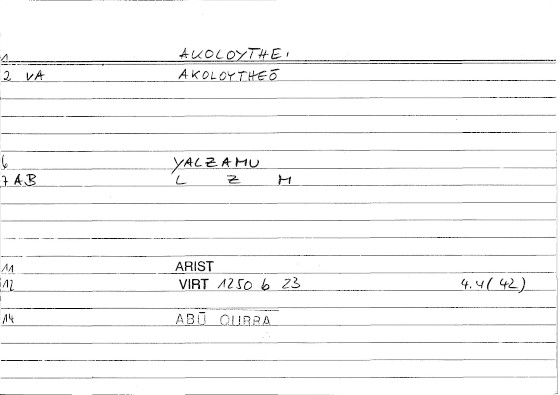 1 AKOLOYTHEI
2 VA AKOLOYTHEŌ
6 YALZAMU
7 AB L Z M
11 ARIST
12 VIRT 1250 b 23 4.4 (42)
14 ABŪ QURRA